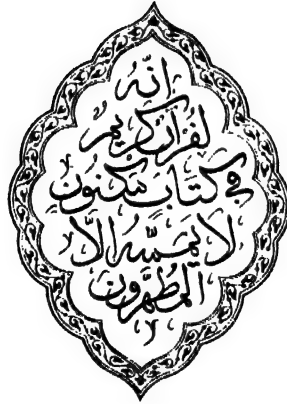 انّه
لقرآن كريم
في كتاب مكنون
لا يمسّه الّا
المطهّرون